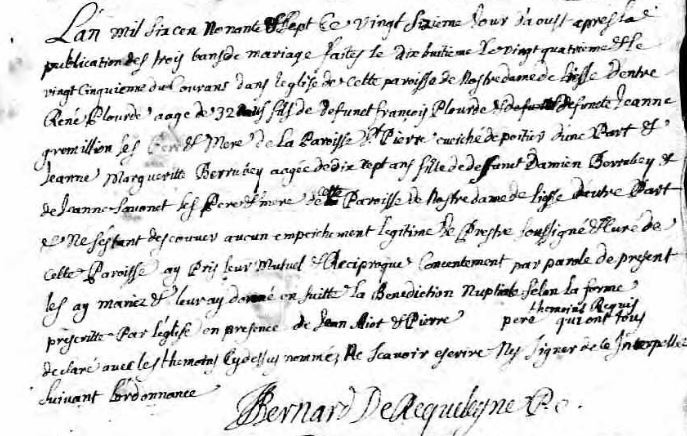 L'an mil six cen nonante & sept ce vingt sixieme Jour d'aoust apres la
publication des trois bans de mariage faites le dix huitieme le vingt quatrieme & le
vingt cinquieme du Courans dans leglise de Cette paroisse de Nostre dame de liesse d'entre
René Plourde aage de 32 ans fils de defunct françois Plourde & defuncte Jeanne
gremillion ses Pere & Mere de La Paroisse St Pierre eveiché de poitier d'une Part &
Jeanne Margueritte Berrubey aagée de dix sept ans fille de deffunt Damien Berrubey &
de Jeanne Savonet ses Pere & mere de Cette Paroisse de Nostre dame de liesse d'autre Part
& Ne s'estant descouver aucun empeichement legitime Je Prestre soussigné & Curé de
Cette Paroisse ay Pris leur Mutuel & Reciproque Concentement par parole de present
les ay mariez & leur ay donné en suitte la Benediction Nuptiale selon la forme
prescritte Par l'eglise en presence de Jean Miot & Pierre pere themoins Requis qui ont tous
declaré avec les themoins Cydessus nommez Ne Scavoir escrire Ny signer de ce Interpellez
suivant l'ordonnance
Bernard De Requeleyne P.